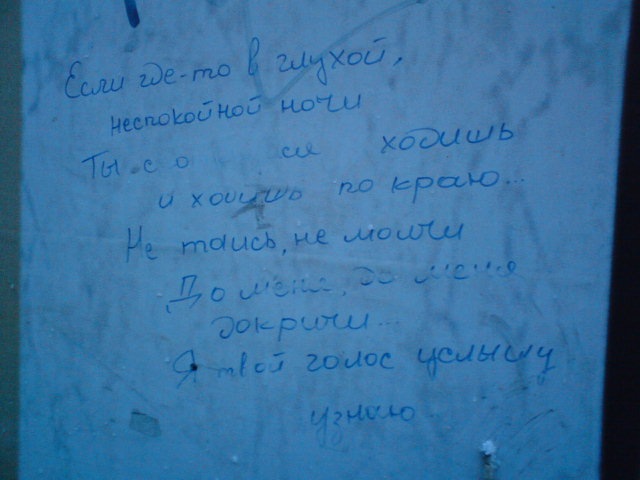 Если где-то в глухой,
неспокойной ночи
Ты ходишь
и ходишь по краю...
Не таись, не молчи
До меня, до меня
докричи...
Я твой голос услышу
узнаю.